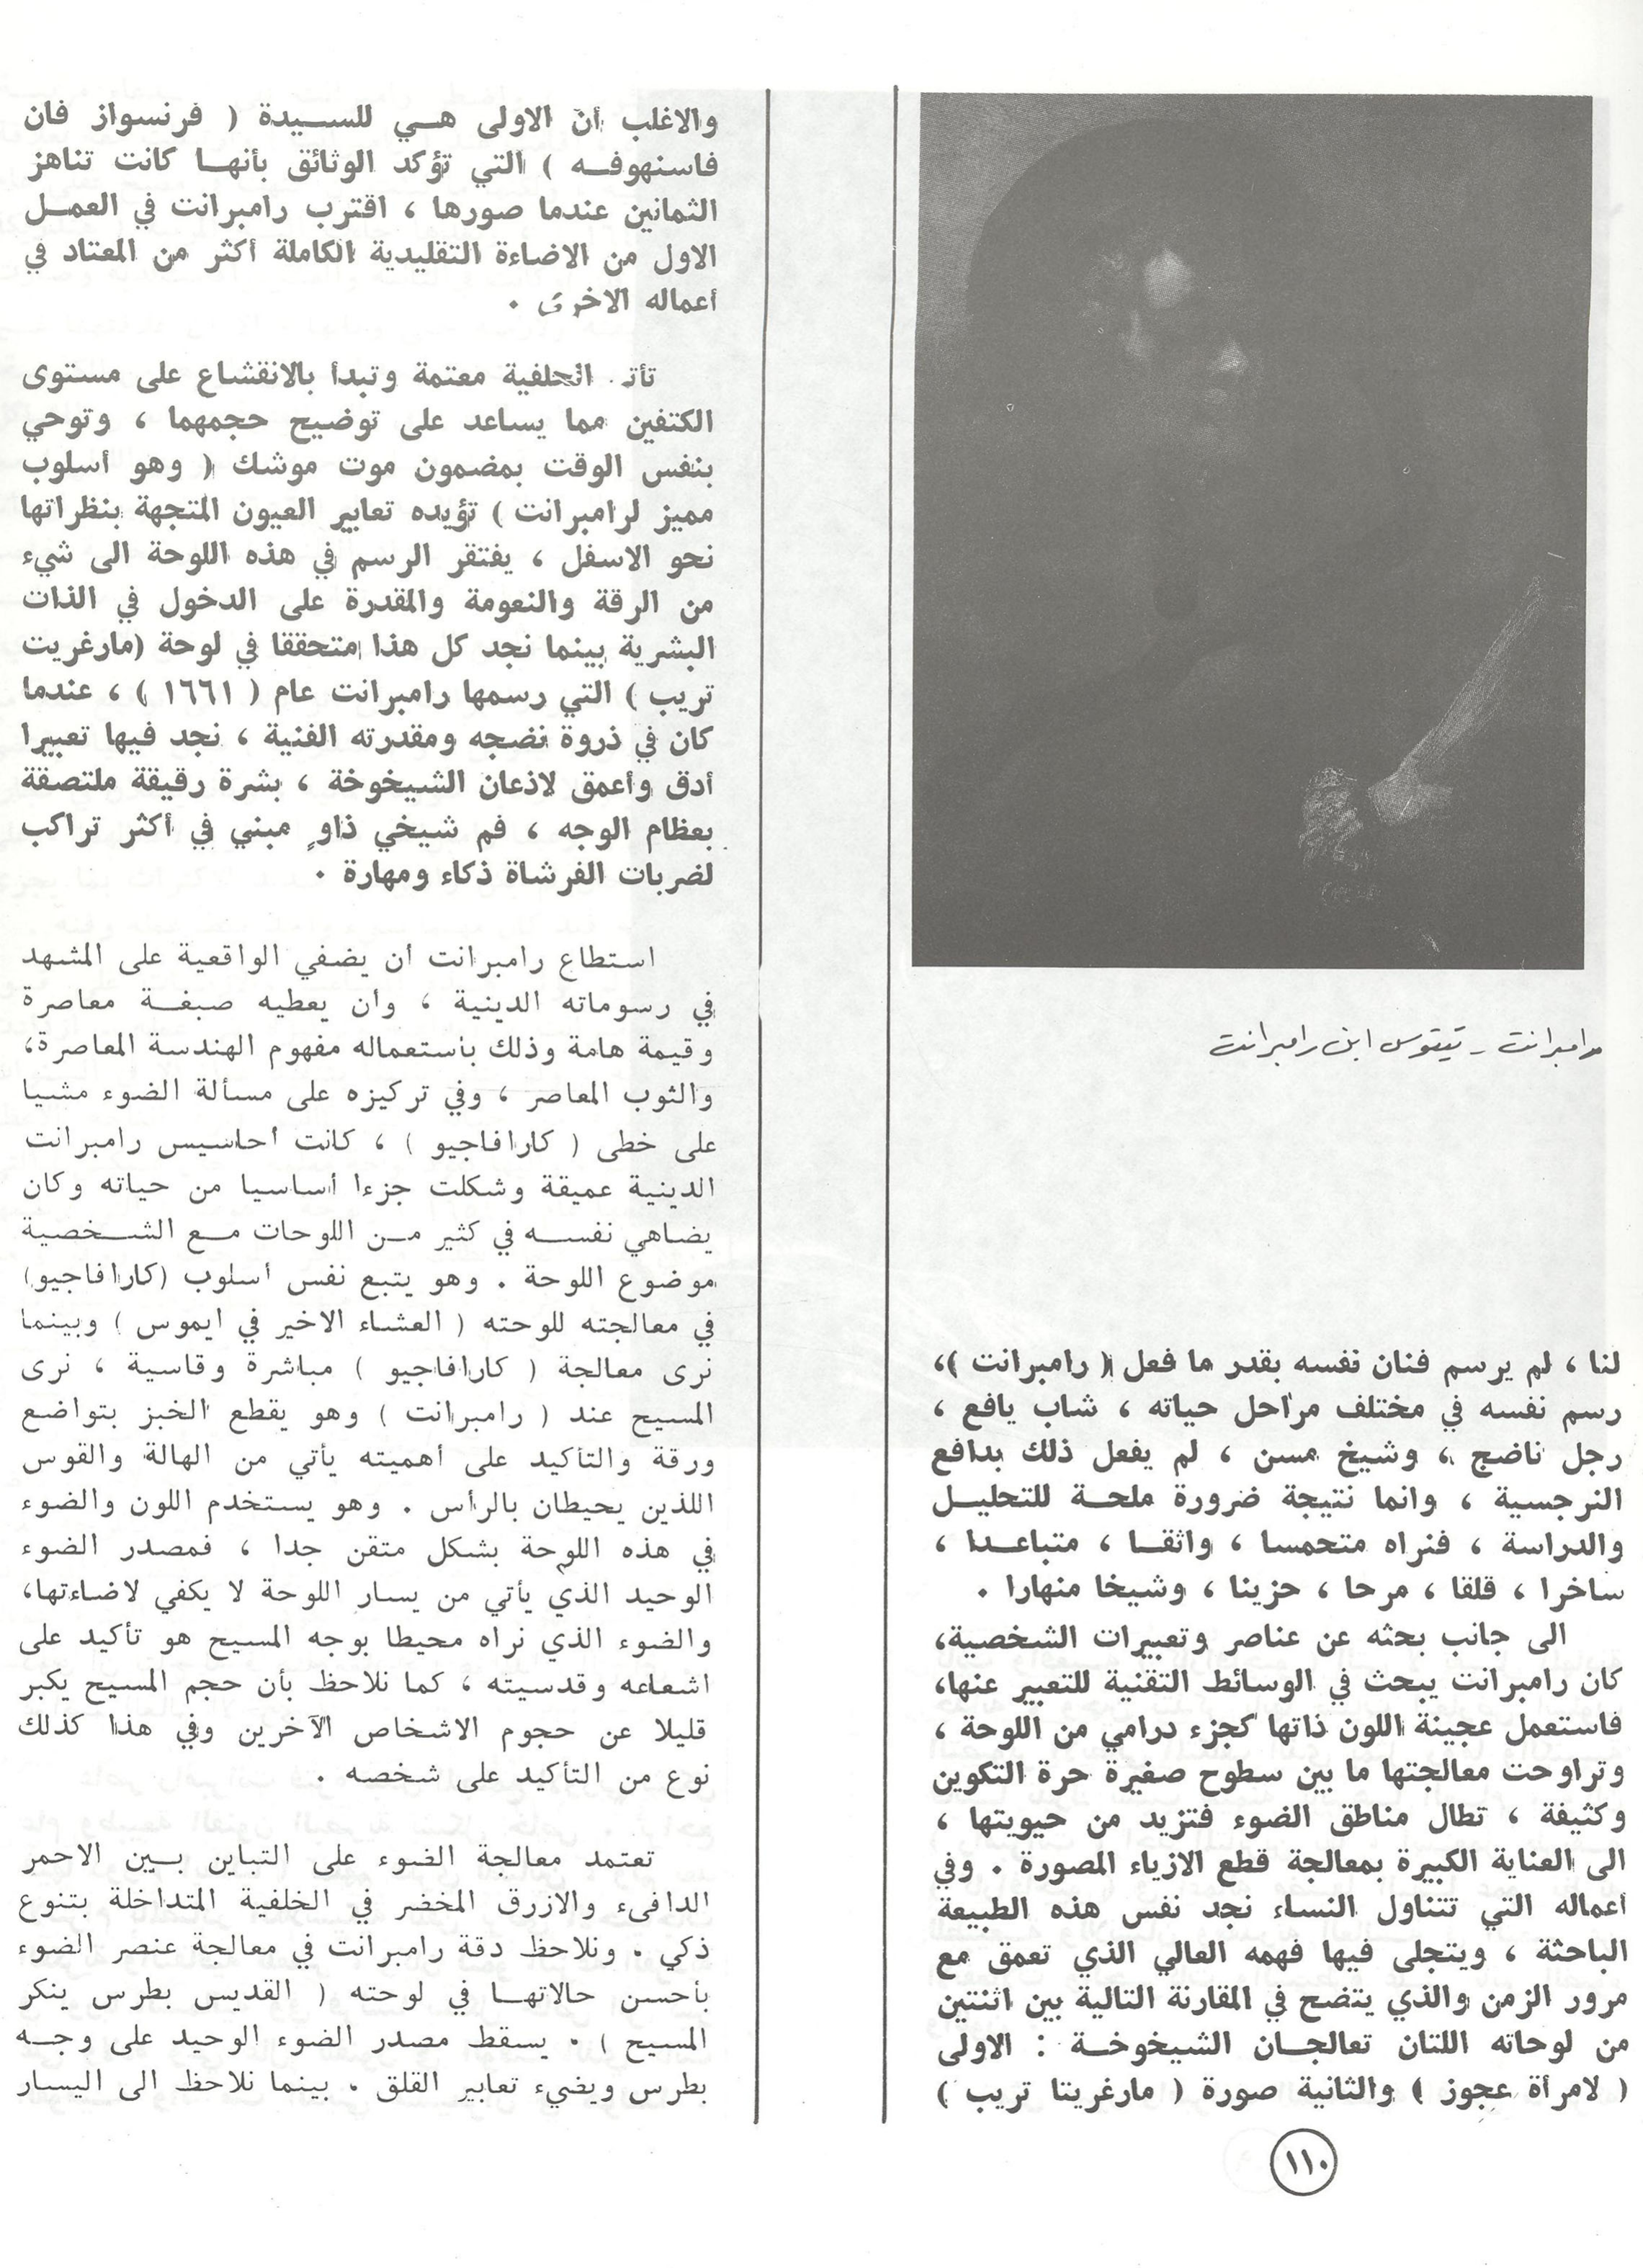 رامبرانت - تيتوس ابن رامبرانت
لنا ، لم يرسم فنان نفسه بقدر ما فعل ( رامبرانت )،
رسم نفسه في مختلف مراحل حياته ، شاب يافع ،
رجل ناضج ، وشيخ مسن ، لم يفعل ذلك بدافع
النرجسية ، وانما نتيجة ضرورة ملحـة للتحليـل
والدراسة ، فنراه متحمسا ، واثقـا ، متباعـدا ،
ساخرا ، قلقا ، مرحا ، حزينا ، وشيخا منهارا .
الى جانب بحثه عن عناصر وتعبيرات الشخصية،
كان رامبرانت يبحث في الوسائط التقنية للتعبير عنها،
فاستعمل عجينة اللون ذاتها كجزء درامي من اللوحة ،
وتراوحت معالجتها ما بين سطوح صغيرة حرة التكوين
وكثيفة ، تطال مناطق الضوء فتزيد من حيويتها ،
الى العناية الكبيرة بمعالجة قطع الازياء المصورة . وفي
أعماله التي تتناول النساء نجد نفس هذه الطبيعة
الباحثة ، ويتجلى فيها فهمه العالي الذي تعمق مع
مرور الزمن والذي يتضح في المقارنة التالية بين اثنتين
من لوحاته اللتان تعالجـان الشيخوخـة : الاولى
( لامرأة عجوز ) والثانية صورة ( مارغريتا تريب )
والاغلب أن الاولى هـي للسـيدة ( فرنسواز فان
فاسنهوفـه ) التي تؤكد الوثائق بأنهـا كانت تناهز
الثمانين عندما صورها ، اقترب رامبرانت في العمـل
الاول من الاضاءة التقليدية الكاملة أكثر من المعتاد في
أعماله الاخرى .
تأتـ الخلفية معتمة وتبدأ بالانقشاع على مستوى
الكتفين مما يساعد على توضيح حجمهما ، وتوحي
بنفس الوقت بمضمون موت موشك ( وهو أسلوب
مميز لرامبرانت ) تؤيده تعابير العيون المتجهة بنظراتها
نحو الاسفل ، يفتقر الرسم في هذه اللوحة الى شيء
من الرقة والنعومة والمقدرة على الدخول في الذات
البشرية بينما نجد كل هذا متحققا في لوحة (مارغريت
تريب ) التي رسمها رامبرانت عام ( ١٦٦١ ) ، عندما
كان في ذروة نضجه ومقدرته الفنية ، نجد فيها تعبيرا
أدق وأعمق لاذعان الشيخوخة ، بشرة رقيقة ملتصقة
بعظام الوجه ، فم شيخي ذاوٍ مبني في أكثر تراكب
لضربات الفرشاة ذكاء ومهارة .
استطاع رامبرانت أن يضفي الواقعية على المشهد
في رسوماته الدينية ، وأن يعطيه صبغـة معاصرة
وقيمة هامة وذلك بأستعماله مفهوم الهندسة المعاصرة،
والثوب المعاصر ، وفي تركيزه على مسألة الضوء مشيا
على خطى ( كارافاجيو ) ، كانت أحاسيس رامبرانت
الدينية عميقة وشكلت جزءا أساسيا من حياته وكان
يضاهي نفسـه في كثير مـن اللوحات مـع الشـخصية
موضوع اللوحة . وهو يتبع نفس أسلوب (كارافاجيو)
في معالجته للوحته ( العشاء الاخير في ايموس ) وبينما
نرى معالجة ( كارافاجيو ) مباشرة وقاسية ، نرى
المسيح عند ( رامبرانت ) وهو يقطع الخبز بتواضع
ورقة والتأكيد على أهميته يأتي من الهالة والقوس
اللذين يحيطان بالرأس . وهو يستخدم اللون والضوء
في هذه اللوحة بشكل متقن جدا ، فمصدر الضوء
الوحيد الذي يأتي من يسار اللوحة لا يكفي لاضاءتها،
والضوء الذي نراه محيطا بوجه المسيح هو تأكيد على
اشعاعه وقدسيته ، كما نلاحظ بأن حجم المسيح يكبر
قليلا عن حجوم الاشخاص الآخرين وفي هذا كذلك
نوع من التأكيد على شخصه .
تعتمد معالجة الضوء على التباين بـين الاحمر
الدافىء والازرق المخضر في الخلفية المتداخلة بتنوع
ذكي . ونلاحظ دقة رامبرانت في معالجة عنصر الضوء
بأحسن حالاتهـا في لوحته ( القديس بطرس ينكر
المسيح ) . يسقط مصدر الضوء الوحيد على وجـه
بطرس ويضيء تعابير القلق . بينما نلاحظ الى اليسار
١١٠